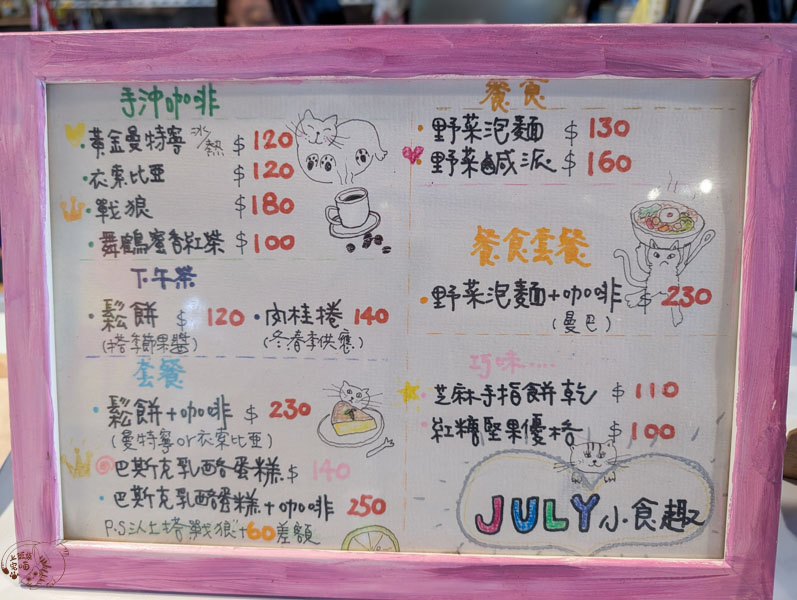 手沖咖啡
黃金曼特寧 冰/熱 $120
衣索比亞 $120
戰狼 $180
舞鶴蜜香紅茶 $100
下午茶
鬆餅 $120
(搭季節果醬)
肉桂捲 140
(冬春季供應)
套餐
鬆餅+咖啡 $230
(曼特寧or衣索比亞)
巴斯克乳酪蛋糕 $140
巴斯克乳酪蛋糕+咖啡 250
P.S以上搭戰狼+60差額
餐食
野菜泡麵 $130
野菜鹹派 $160
餐食套餐
野菜泡麵+咖啡 $230
(曼巴)
巧味....
芝麻手指餅乾 $110
紅糖堅果優格 $100
JULY小食趣